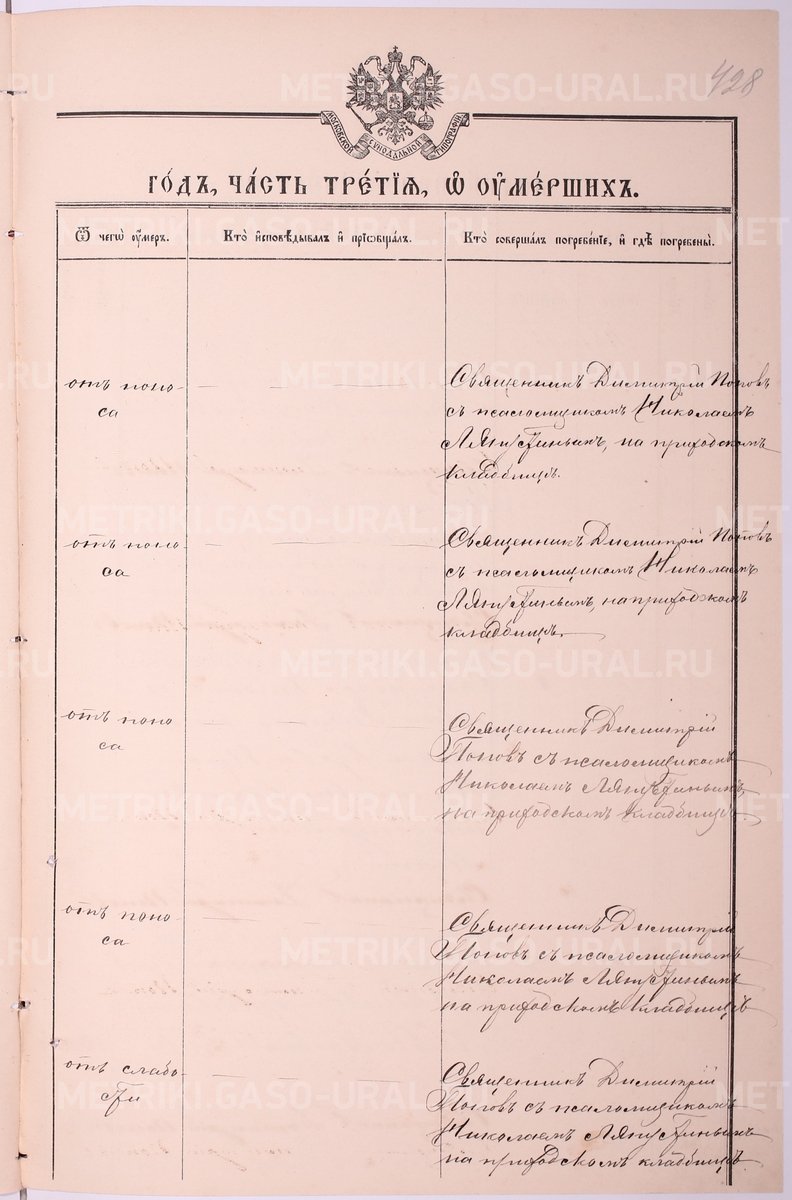 428
МОСКОВСКОЙ СѴНОДАЛЬНОЙ ТИПОГРАФІИ
го́дъ, ча́сть тре́тїѧ, ѡ҆ ᲂу҆ме́ршихъ.
Ѿ чегѡ̀ ᲂу҆́меръ.
Кто̀ и҆сповѣ́дывалъ и҆ прїѡбща́лъ.
Кто̀ соверша́лъ погребе́нїе, и҆ гдѣ̀ погребены̀.
отъ поно-
са
Священникъ Димитрій Поповъ
съ псаломщикомъ Николаемъ
Ляпустинымъ, на приходскомъ
кладбищѣ.
отъ поно-
са
Священникъ Димитрій Поповъ
съ псаломщикомъ Николаемъ
Ляпустинымъ, на приходскомъ
кладбищѣ.
отъ поно
са
Священникъ Димитрій
Поповъ съ псаломщикомъ
Николаемъ Ляпустинымъ
на приходскомъ кладбищѣ.
отъ поно-
са
Священникъ Димитрій
Поповъ съ псаломщикомъ
Николаемъ Ляпустинымъ
на приходскомъ кладбищѣ
отъ слабо-
сти
Священникъ Димитрій
Поповъ съ псаломщикомъ
Николаемъ Ляпустинымъ
на приходскомъ кладбищѣ
METRIKI.GASO-URAL.RU